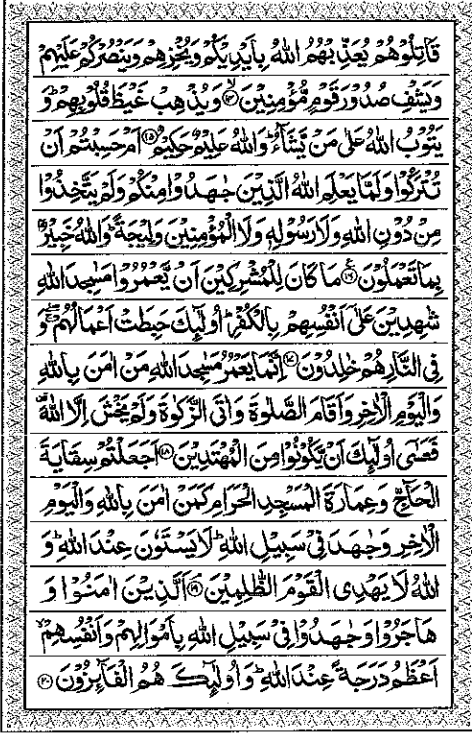 قَاتِلُوۡهُمۡ يُعَذِّبۡهُمُ اللّٰهُ بِاَيۡدِيۡكُمۡ وَيُخۡزِهِمۡ وَيَنۡصُرۡكُمۡ عَلَيۡهِمۡ
وَيَشۡفِ صُدُوۡرَ قَوۡمٍ مُّؤۡمِنِيۡنَ ۙ‏﴿۱۴﴾ وَيُذۡهِبۡ غَيۡظَ قُلُوۡبِهِمۡ ؕ وَ
يَتُوۡبُ اللّٰهُ عَلٰى مَنۡ يَّشَآءُ ؕ وَاللّٰهُ عَلِيۡمٌ حَكِيۡمٌ‏﴿۱۵﴾ اَمۡ حَسِبۡتُمۡ اَنۡ
تُتۡرَكُوۡا وَلَمَّا يَعۡلَمِ اللّٰهُ الَّذِيۡنَ جٰهَدُوۡا مِنۡكُمۡ وَلَمۡ يَتَّخِذُوۡا
مِنۡ دُوۡنِ اللّٰهِ وَلَا رَسُوۡلِهٖ وَلَا الۡمُؤۡمِنِيۡنَ وَلِيۡجَةً‌ ؕ وَاللّٰهُ خَبِيۡرٌۢ
بِمَا تَعۡمَلُوۡنَ‏﴿۱۶﴾ مَا كَانَ لِلۡمُشۡرِكِيۡنَ اَنۡ يَّعۡمُرُوۡا مَسٰجِدَ اللّٰهِ
شٰهِدِيۡنَ عَلٰٓى اَنۡفُسِهِمۡ بِالۡـكُفۡرِ‌ؕ اُولٰٓٮِٕكَ حَبِطَتۡ اَعۡمَالُهُمۡ ۖۚ وَ
فِى النَّارِ هُمۡ خٰلِدُوۡنَ‏﴿۱۷﴾ اِنَّمَا يَعۡمُرُ مَسٰجِدَ اللّٰهِ مَنۡ اٰمَنَ بِاللّٰهِ
وَالۡيَوۡمِ الۡاٰخِرِ وَاَقَامَ الصَّلٰوةَ وَاٰتَى الزَّكٰوةَ وَلَمۡ يَخۡشَ اِلَّا اللّٰهَ‌
فَعَسٰٓى اُولٰٓٮِٕكَ اَنۡ يَّكُوۡنُوۡا مِنَ الۡمُهۡتَدِيۡنَ‏﴿۱۸﴾ اَجَعَلۡتُمۡ سِقَايَةَ
الۡحَآجِّ وَعِمَارَةَ الۡمَسۡجِدِ الۡحَـرَامِ كَمَنۡ اٰمَنَ بِاللّٰهِ وَالۡيَوۡمِ
الۡاٰخِرِ وَجٰهَدَ فِىۡ سَبِيۡلِ اللّٰهِ‌ ؕ لَا يَسۡتَوٗنَ عِنۡدَ اللّٰهِ ؕ وَ
اللّٰهُ لَا يَهۡدِى الۡقَوۡمَ الظّٰلِمِيۡنَ‏﴿۱۹﴾ اَلَّذِيۡنَ اٰمَنُوۡا وَ
هَاجَرُوۡا وَجٰهَدُوۡا فِىۡ سَبِيۡلِ اللّٰهِ بِاَمۡوَالِهِمۡ وَاَنۡفُسِهِمۡۙ
اَعۡظَمُ دَرَجَةً عِنۡدَ اللّٰهِ‌ؕ وَاُولٰٓٮِٕكَ هُمُ الۡفَآٮِٕزُوۡنَ‏﴿۲۰﴾